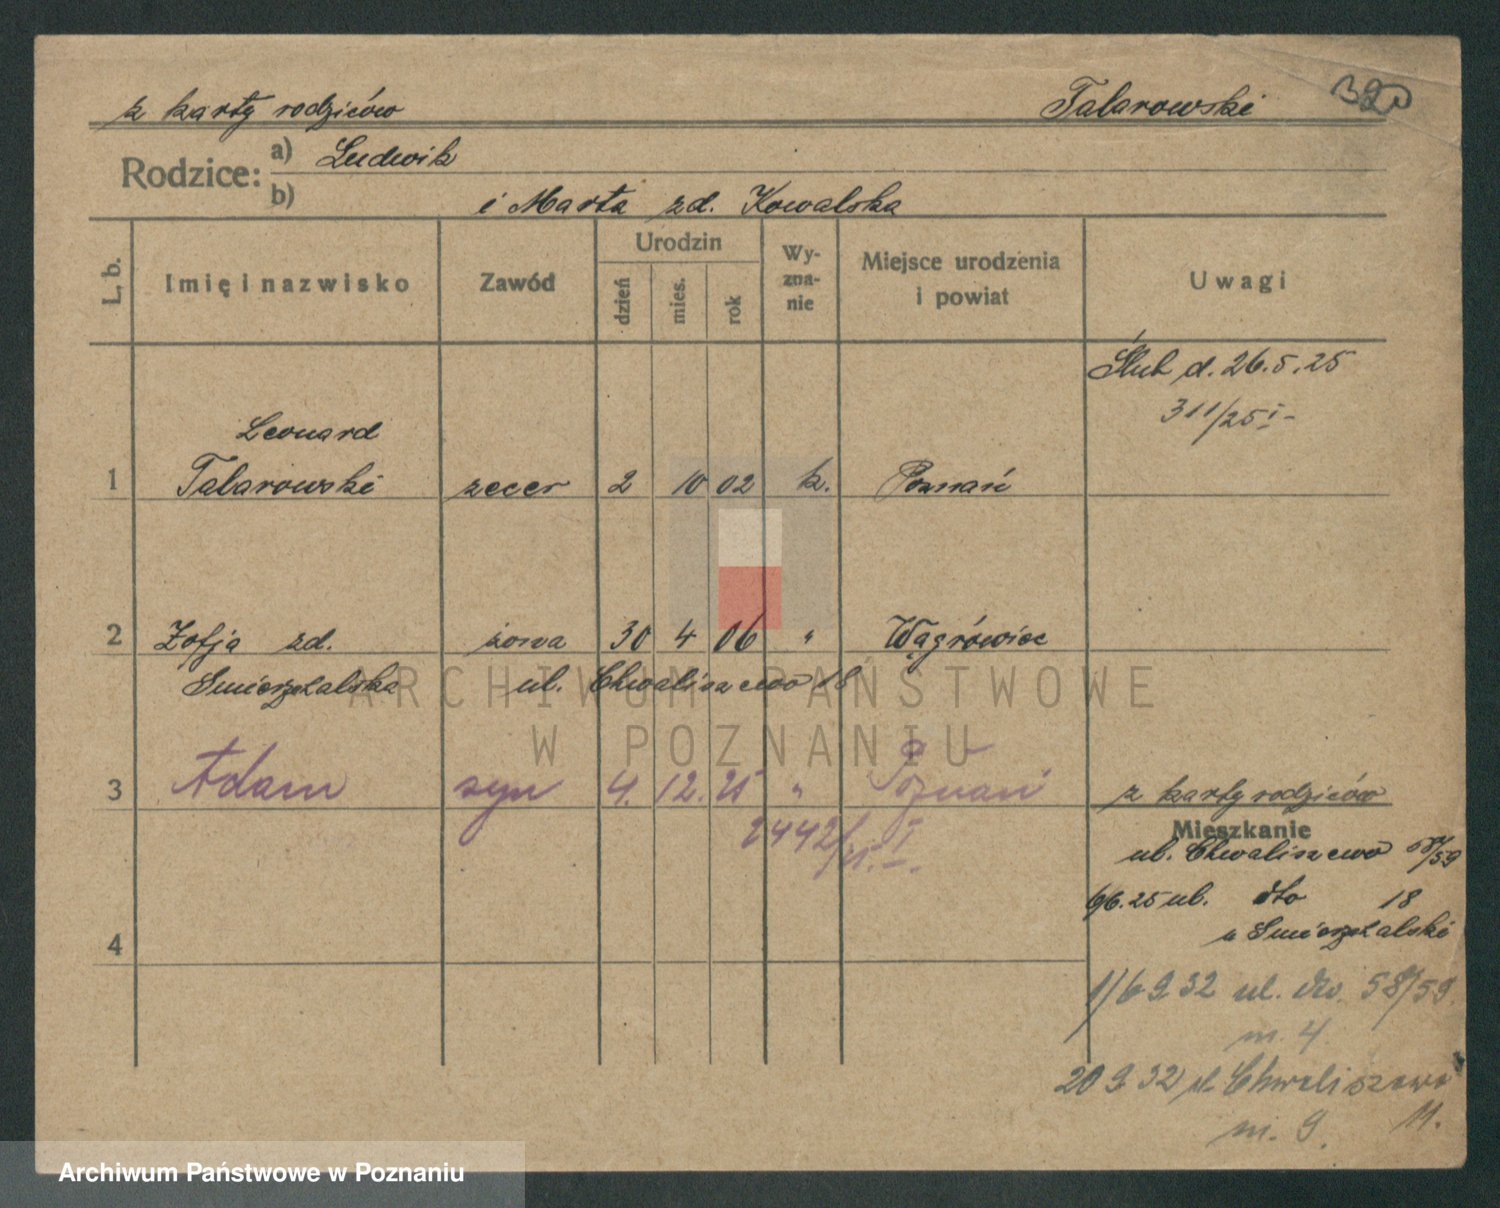 z karty rodziców
Talarowski
320
Rodzice:
a) Ludwik
b) i Marta zd. Kowalska
L. b.
Imię i nazwisko
Zawód
Urodzin
dzień
mies.
rok
Wy-
zna-
nie
Miejsce urodzenia
i powiat
Uwagi
Ślub d. 26.5.25
311/25 I-
Leonard
1 Talarowski zecer 2 10 02 k. Poznań
2 Zofja zd. żona 30 4 06 " Wągrówiec
Smierzchalska ul. Chwaliszewo 18
3 Adam syn 4. 12. 25 " Poznań
2442/25. I
z karty rodziców
Mieszkanie
ul. Chwaliszewo 58/59
6/6.25 ul. dto 18
u Smierzchalski
4
1/6 9 32 ul. dto. 58/59
m. 4.
20 9 32 ul. Chwaliszewo
m. 9. 11.
ARCHIWUM PAŃSTWOWE
W POZNANIU
Archiwum Państwowe w Poznaniu